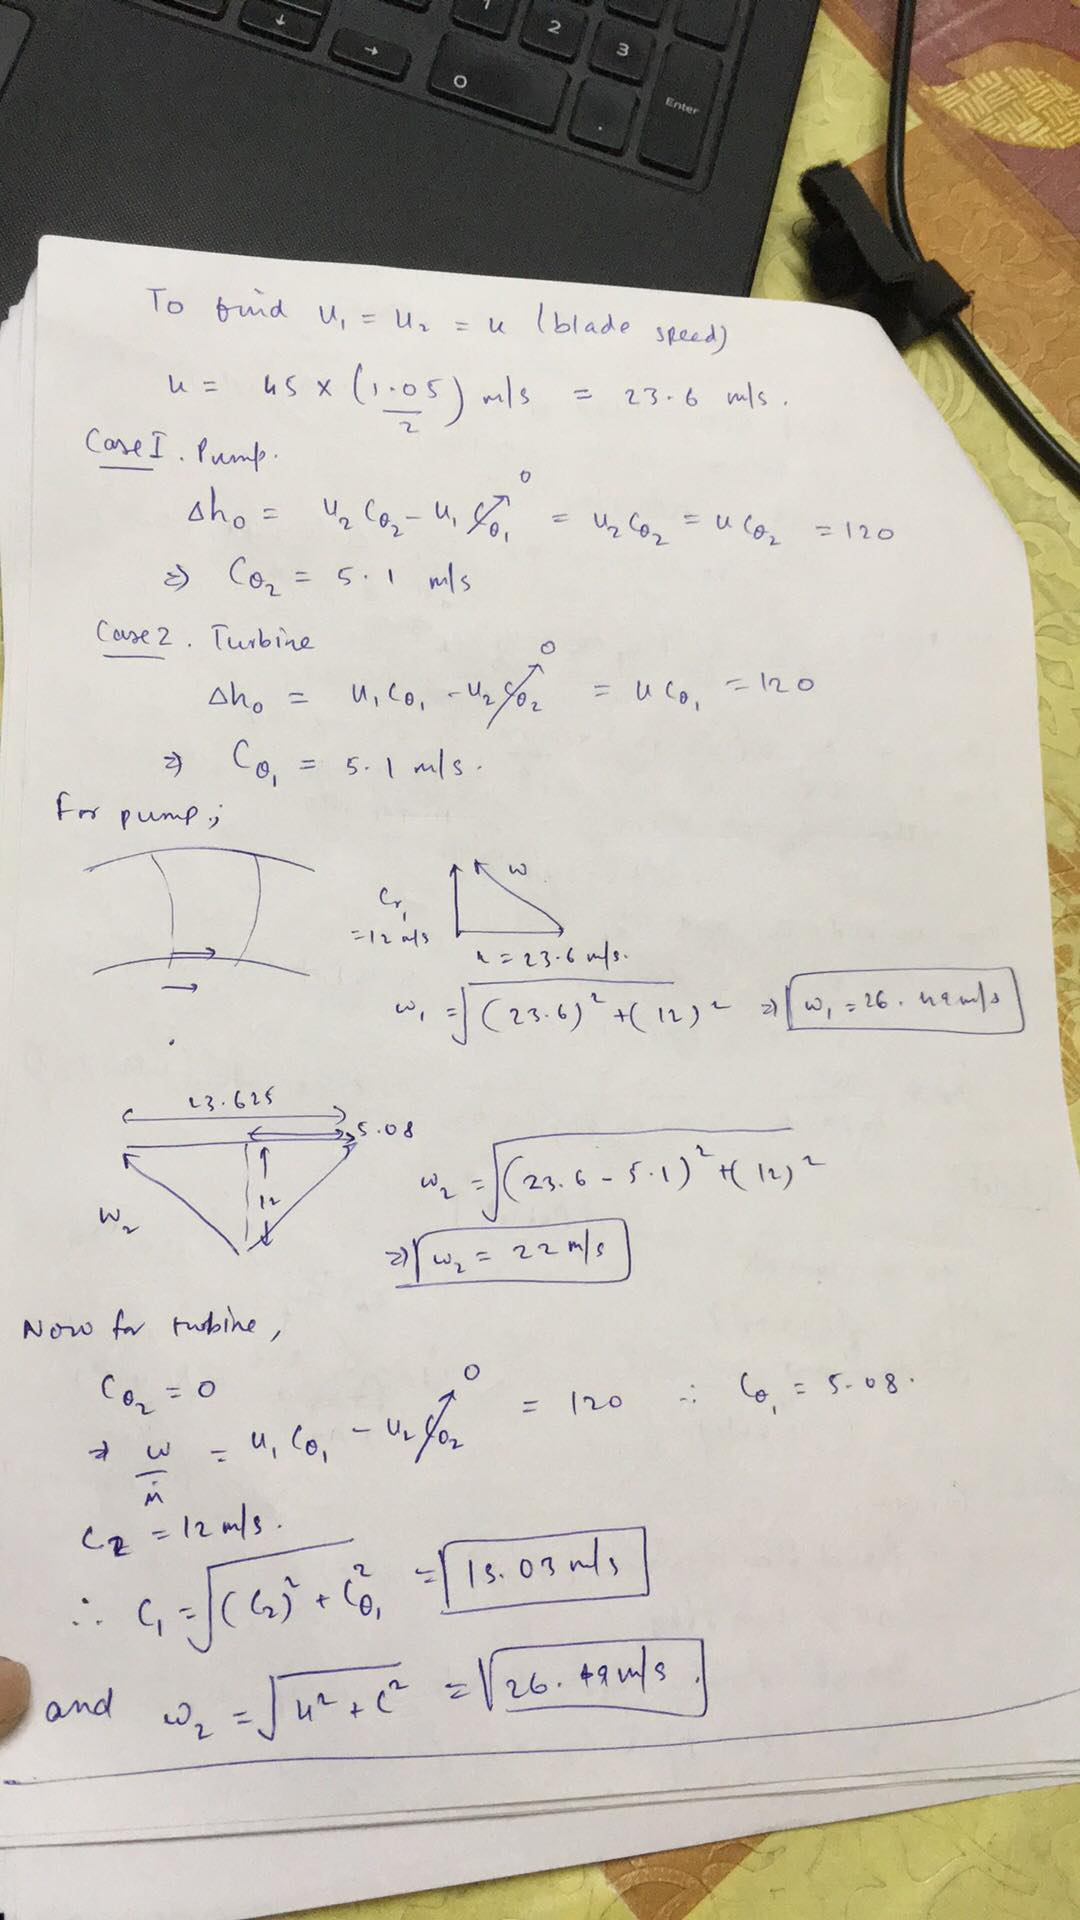 1
2
3
0
.
Enter
↓
→
To find u₁ = u₂ = u (blade speed)
u = 45 × (1.05/2) m/s = 23.6 m/s.
Case I. Pump.
Δh₀ = u₂ Cθ₂ - u₁ Cθ₁ 0 = u₂ Cθ₂ = u Cθ₂ = 120
⇒ Cθ₂ = 5.1 m/s
Case 2. Turbine
Δh₀ = u₁ Cθ₁ - u₂ Cθ₂ 0 = u Cθ₁ = 120
⇒ Cθ₁ = 5.1 m/s.
For pump;
Cr₁ = 12 m/s
w
u = 23.6 m/s.
w₁ = √(23.6)² + (12)² ⇒ w₁ = 26.49 m/s
23.625
5.08
12
w₂
w₂ = √(23.6 - 5.1)² + (12)²
⇒ w₂ = 22 m/s
Now for turbine,
Cθ₂ = 0
⇒ w/ṁ = u₁ Cθ₁ - u₂ Cθ₂ 0 = 120 ∴ Cθ₁ = 5.08.
C₂ = 12 m/s.
∴ C₁ = √(C₂)² + Cθ₁² = 13.03 m/s
and w₂ = √u² + C² = 26.49 m/s.